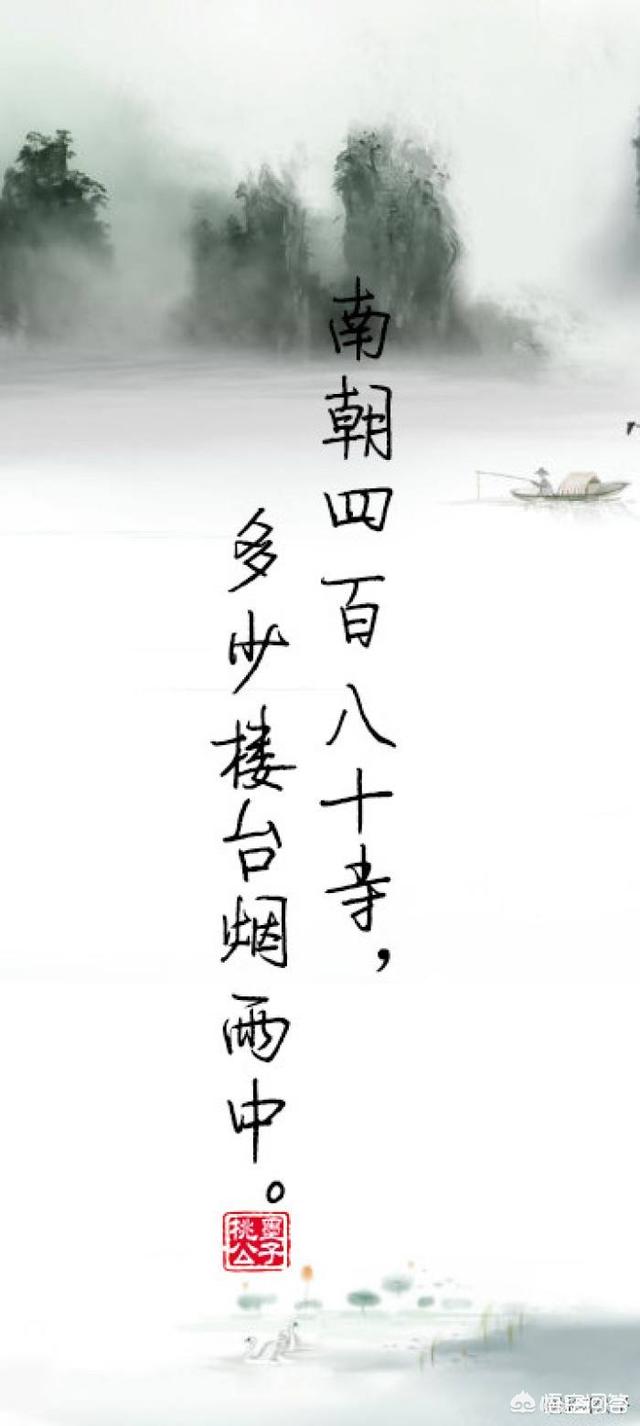 南朝四百八十寺，
多少楼台烟雨中。
墨子
桃公
悟空问答